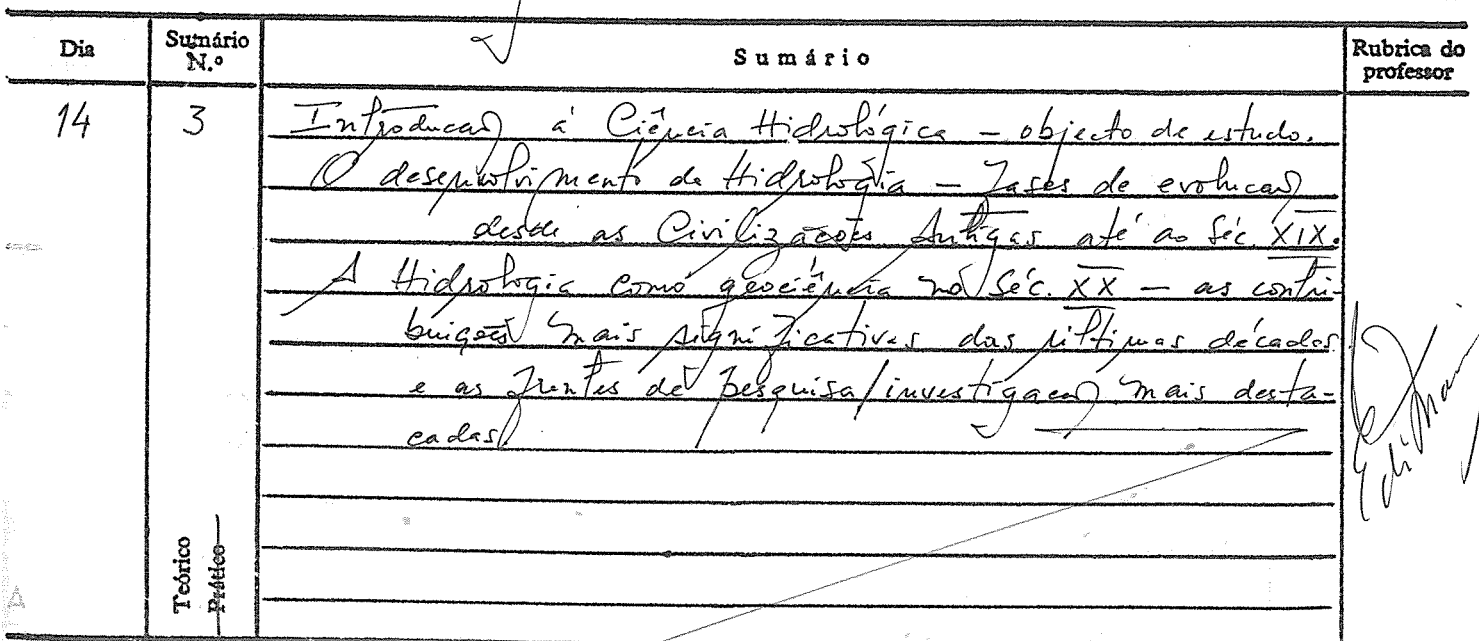 Dia Sumário N.º Sumário Rubrica do professor
14 3 Introdução à Ciência Hidrológica – objecto de estudo.
O desenvolvimento da Hidrologia – Fases de evolução
desde as Civilizações Antigas até ao Séc. XIX.
A Hidrologia como geociência no Séc. XX – as contri-
buições mais significativas das últimas décadas
e as frentes de pesquisa/investigação mais desta-
cadas.
Teórico
Prático